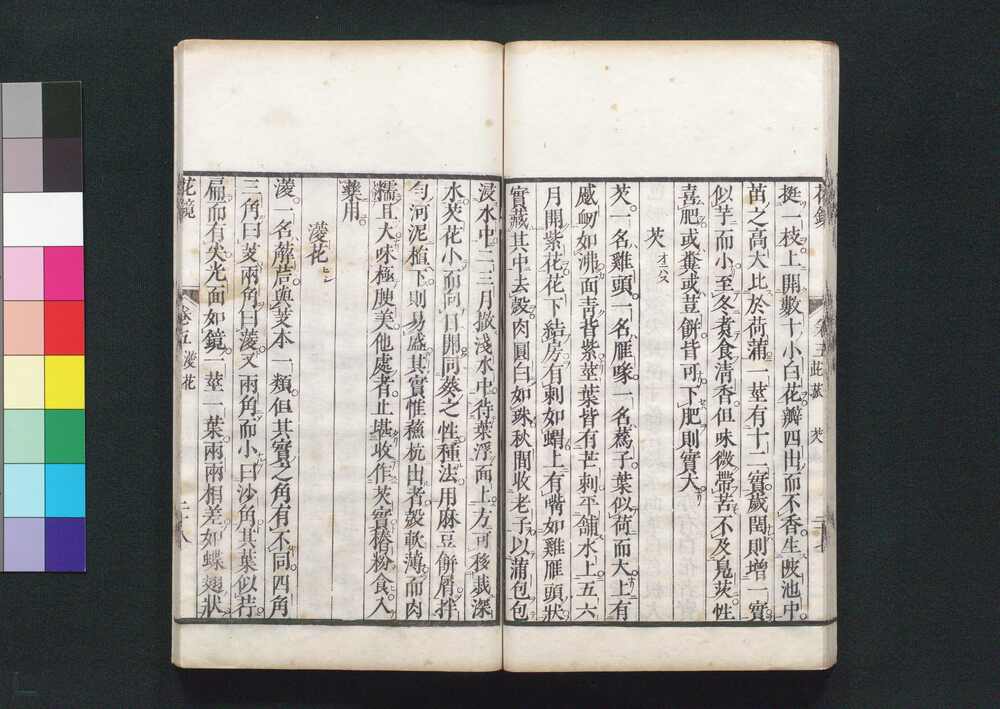 花鏡 卷五 茈菰 芡 二十七
挺一枝。上開數十小白花。瓣四出而不香。生陂池中。
苗之高大。比於荷蒲。一莖有十二實。歲閏則增一實。
似芋而小。至冬煮食清香。但味微帶苦。不及鳧茨。性
喜肥。或糞或荳餅。皆可下肥。則實大。
芡 オニバス
芡。一名雞頭。一名雁喙。一名蔿子。葉似荷而大。上有
蹙衂如沸。面青背紫。莖葉皆有芒刺。平舖水上。五六
月開紫花。花下結房。有刺如蝟。上有嘴。如雞雁頭狀。
實藏其中。去殼肉圓白如珠。秋間收老子。以蒲包包
浸水中。二三月撒淺水中。待葉浮面上。方可移栽深
水。芡花小而向日開。同葵之性。種法用麻豆餅屑。拌
勻河泥種下。則易盛。其實惟蘓杭出者。殼軟薄而肉
糯且大。味極腴美。他處者。止堪收作芡實。樁粉食。入
藥用。
菱花 ヒシ
菱。一名薢茩。與芰本一類。但其實之角有不同。四角
三角曰芰。兩角曰菱。又兩角而小。曰沙角。其葉似荇。
扁而有尖。光面如鏡。一莖一葉。兩兩相差。如蝶翅狀。
花鏡 卷五 菱花 二十八